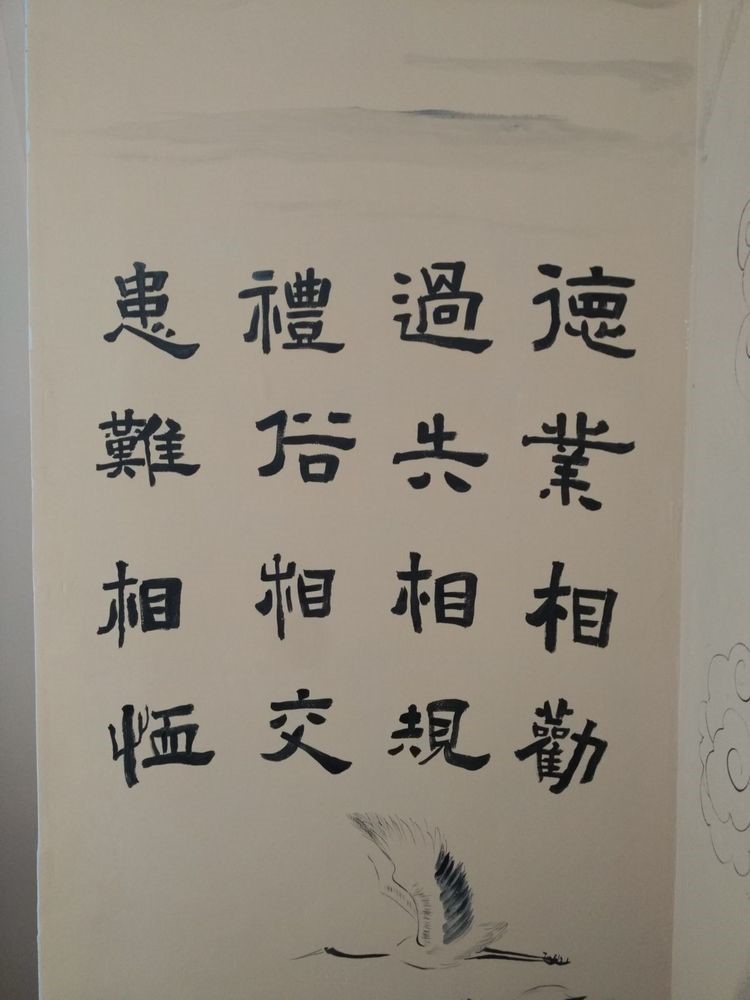 德業相勸
過失相規
禮俗相交
患難相恤